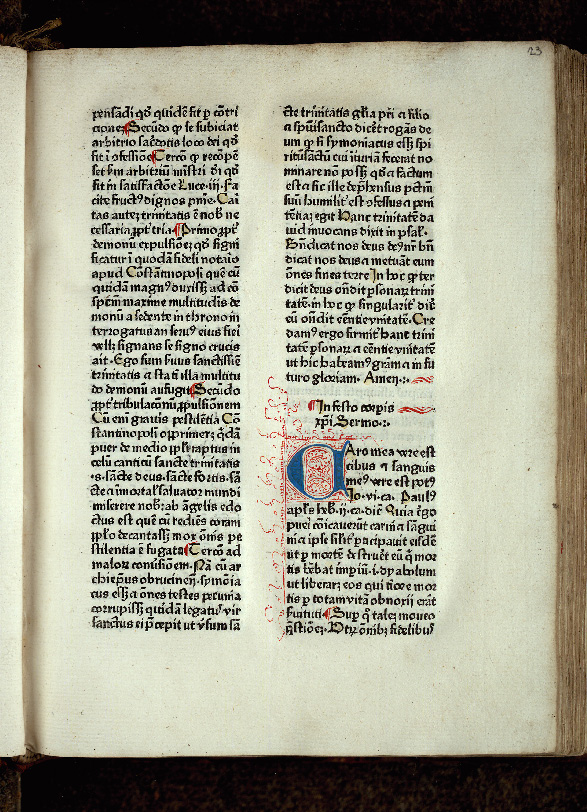 23
pensādi qđ quidē fit p cōtri
cionez Secūdo ꝙ se subiciat
arbitrio sac̄dotis loco dei qđ
fit ī ꝯfessiōe Tercō ꝙ recōpē
set scḋm arbitriū mīstri dī qđ
fit in satisfactōe Luce .iij. Fa
cite fructꝰ dignos pn̄ie. Cai
tas autez trinitatis ē nob ne
cessaria ꝓpt̄ tria. Primo ꝓpt̄
demonū expulsiōez qđ signi
ficatur ī quodā fideli notaio
apud Cōstātinopolī quē cū
quidā magnꝰ duxissꝫ ad cō
spc̄m maxime multitudīs de
monū a sedente in throno in
terrogatus an seruꝰ eius fieri
vellꝫ signans se signo crucis
ait. Ego sum ẜuus sanctissīe
trinitatis ⁊ statī illa multitu
do demonū aufugit Secūdo
ꝓpt̄ tribulatōnū ꝓpulsiōnem
Cū eni grauis pestilētia Cō
stantinopolī opprimerꝫ qͥdā
puer de medio ppl̄i raptus in
celū canticū sancte trinitatis
.s. sācte deus. sācte fortis. sā
cte ⁊ īmortal' saluator mundi
miserere nob' ab āgelis edo
ctus est quē cū rediēs coram
pplo decantassꝫ mox ōnis pe
stilentia ē fugata Tercō ad
maiorē
archiep̄us obrucineñ. symōīa
cus essꝫ ⁊ ōnes testes pecunia
corrupissꝫ quidā legatꝰ vir
sanctus ei p̄cepit ut v̄sum sā
cte trinitatis gl̄ia pr̄i ⁊ filio
⁊ spūisancto dicēt rogās de
um ꝙ si symoniacus essꝫ spi
ritūsactū cui iniuriā fecerat no
minare nō possꝫ qđ ⁊ factum
est ⁊ sic ille dep̄hensus pctm̄
suū humilit̄ est ꝯfessus ⁊ peni
tētiaꝫ egit Hanc trinitatē da
uid inuocans dixit in psal'.
Bn̄dicat nos deus deꝰ nr̄ bn̄
dicat nos deus ⁊ metuāt eum
ōnes fines terre In hoc ꝙ ter
dicit deus on̄dit ꝑsonaꝝ trini
tatē. in hoc ꝙ singularit̄ dīc̄
eū on̄dit eēntie vnitatē. Cre
damꝰ ergo firmit̄ hanc trini
tatē ꝑsonaꝝ ⁊ eēntie vnitatē
ut hic habeamꝰ gr̄am ⁊ in fu
turo gloriam. Amen.
In festo corpis
xp̄i Sermo.
CAro mea vere est
cibus ⁊ sanguis
meꝰ vere est potꝰ
Jo. vi. ca. Paulꝰ
apl's heb. ij. ca. dic̄. Quia ergo
pueri cōicauerūt carni ⁊ sāgui
ni ⁊ ipse silit̄ ꝑticipauit eisdē
ut ꝑ mortē destruet̄ eū qͥ mor
tis hēbat impiū .i. dyabolum
ut liberarꝫ eos qui tiore mor
tis ꝑ totam vitā obnoxij erāt
ẜuituti Suꝑ qͦ taleꝫ moueo
q̄stiōez. Vtrꝫ ōnibꝫ fidelibꝰ